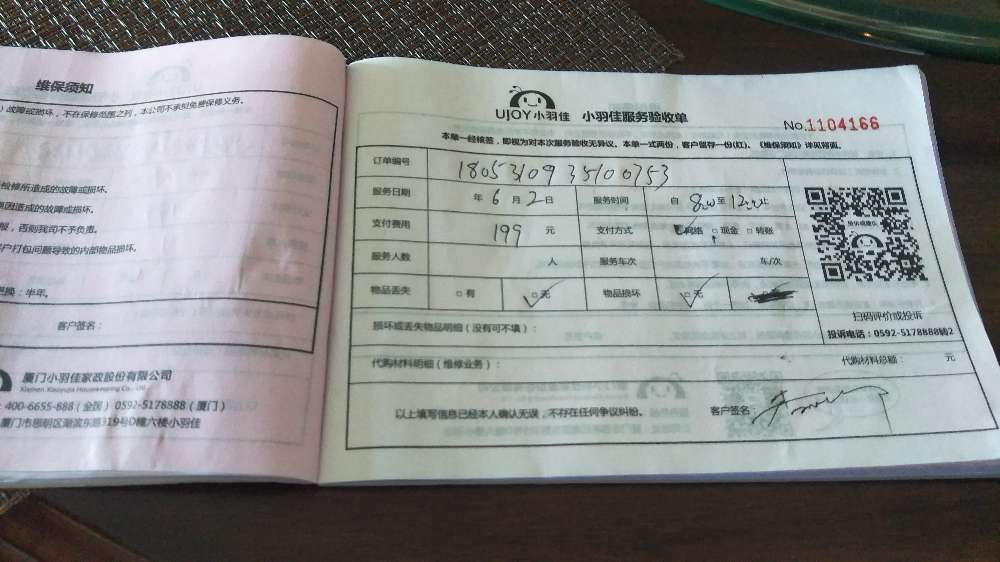 维保须知
故障或损坏，不在保修范围之列，本公司不承担免费保修义务。
检修所造成的故障或损坏。
原因造成的故障或损坏。
报，否则我司不予负责。
户打包问题导致的内部物品损坏。
更换：半年。
客户签名：
厦门小羽佳家政股份有限公司
Xiamen Xiaoyujia Housekeeping Co., Ltd
400-6655-888（全国） 0592-5178888（厦门）
厦门市思明区湖滨东路319号D幢六楼小羽佳
UJOY小羽佳 小羽佳服务验收单
No.1104166
本单一经核签，即视为对本次服务验收无异议。本单一式两份，客户留存一份(红)。《维保须知》详见背面。
订单编号 18053109335100753
服务日期 年 6 月 2 日 服务时间 自 8:00 至 12:00 止
支付费用 199 元 支付方式 网络 □现金 □转账
服务人数 人 服务车次 车/次
物品丢失 □有 □无 物品损坏 □无
扫码评价或投诉
投诉电话：0592-5178888转2
损坏或丢失物品明细（没有可不填）：
代购材料明细（维修业务）： 代购材料总额： 元
以上填写信息已经本人确认无误，不存在任何争议纠纷。 客户签名：